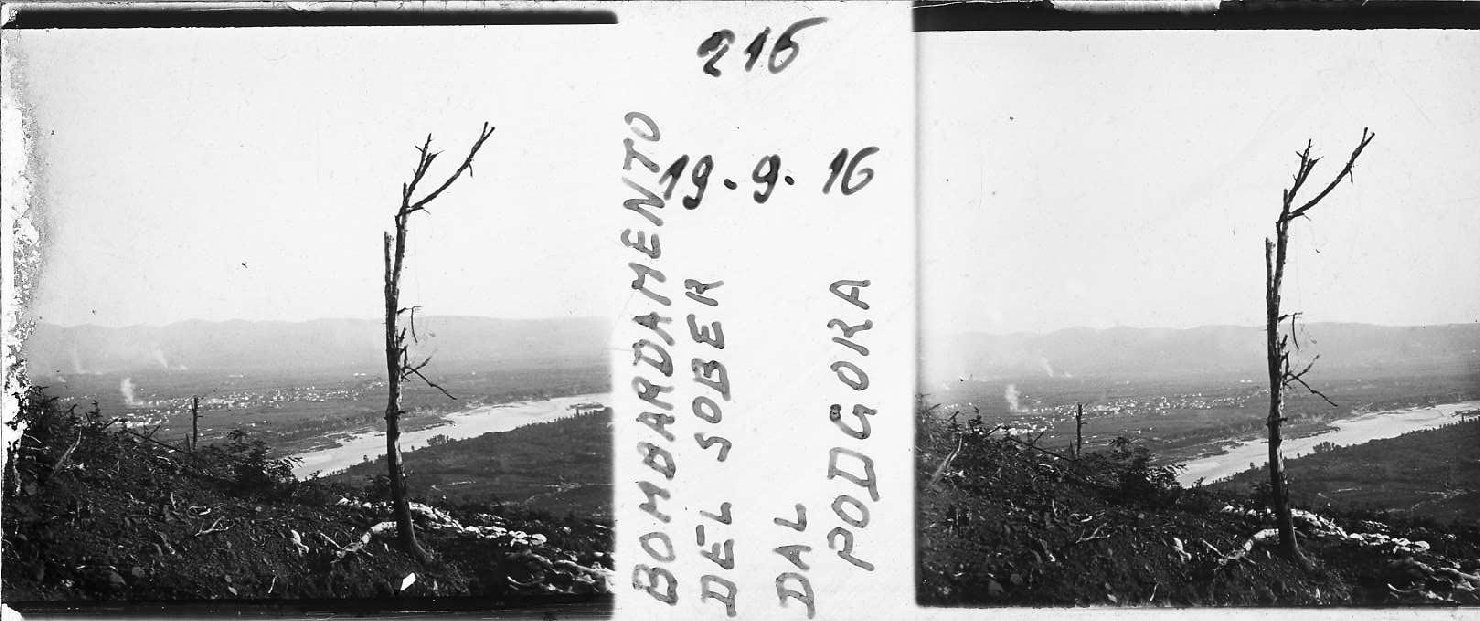 216
19.9.16
BOMBARDAMENTO
DEL SOBER
DAL
PODGORA